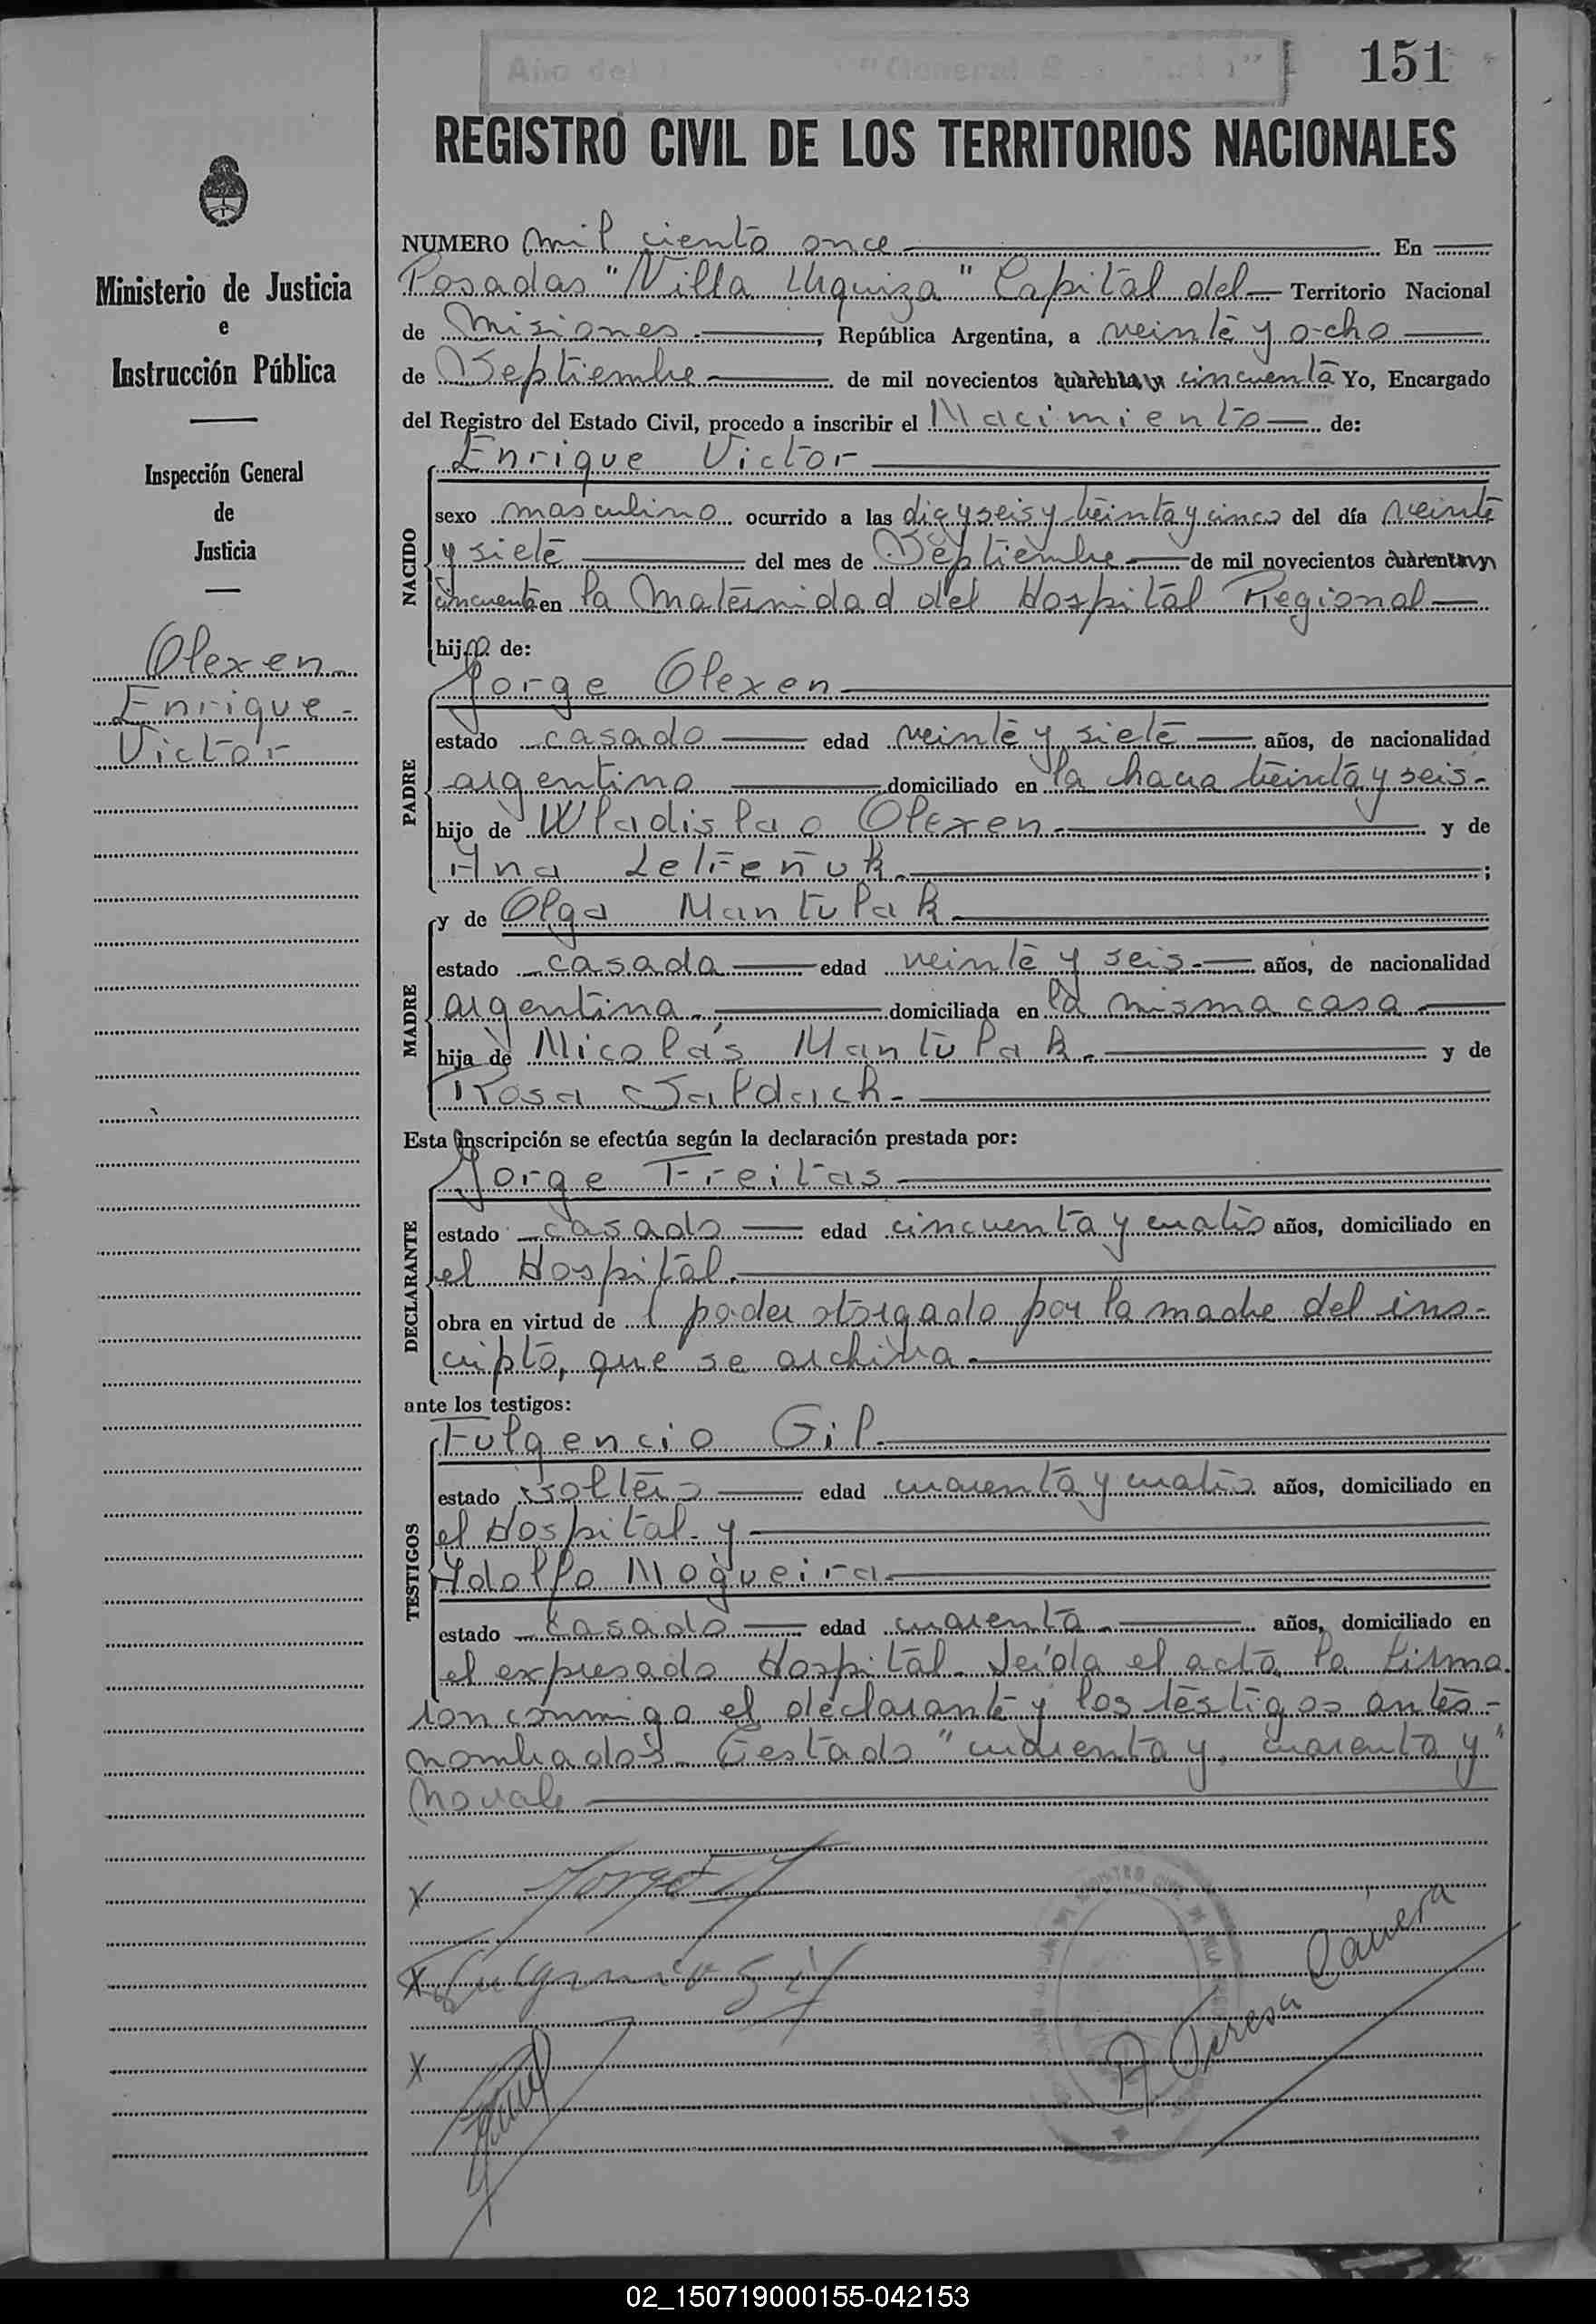 Año del "General
151
REGISTRO CIVIL DE LOS TERRITORIOS NACIONALES
Ministerio de Justicia
e
Instrucción Pública
Inspección General
de
Justicia
Olexen
Enrique -
Victor
NUMERO mil ciento once En
Posadas "Villa Urquiza" Capital del Territorio Nacional
de Misiones. , República Argentina, a veinte y ocho
de Septiembre de mil novecientos cuarenta y cincuenta Yo, Encargado
del Registro del Estado Civil, procedo a inscribir el Nacimiento de:
Enrique Victor
NACIDO
sexo masculino ocurrido a las diez y seis y treinta y cinco del día veinte
y siete del mes de Septiembre de mil novecientos cuarenta y
cincuenta en la Maternidad del Hospital Regional
hijo de:
Jorge Olexen
PADRE
estado casado edad veinte y siete años, de nacionalidad
argentino domiciliado en la chacra treinta y seis-
hijo de Wladislao Olexen. y de
Ana Letreñuk. ;
y de Olga Mantulak.
MADRE
estado casada edad veinte y seis. años, de nacionalidad
argentina. domiciliada en la misma casa
hija de Nicolás Mantulak. y de
Rosa Saldach.
Esta inscripción se efectúa según la declaración prestada por:
Jorge Freitas
DECLARANTE
estado casado edad cincuenta y cuatro años, domiciliado en
el Hospital.
obra en virtud de l poder otorgado por la madre del ins-
cripto, que se archiva.
ante los testigos:
Fulgencio Gil.
TESTIGOS
estado soltero edad cuarenta y cuatro años, domiciliado en
el Hospital y
Adolfo Nogueira.
estado casado edad cuarenta. años, domiciliado en
el expresado Hospital. Leída el acta la firma
ron conmigo el declarante y los testigos antes-
nombrados. Testado "cuarenta y, cuarenta y"
No vale
X Jorge
X Fulgencio Gil
X
A. Teresa Carrera
02_150719000155-042153